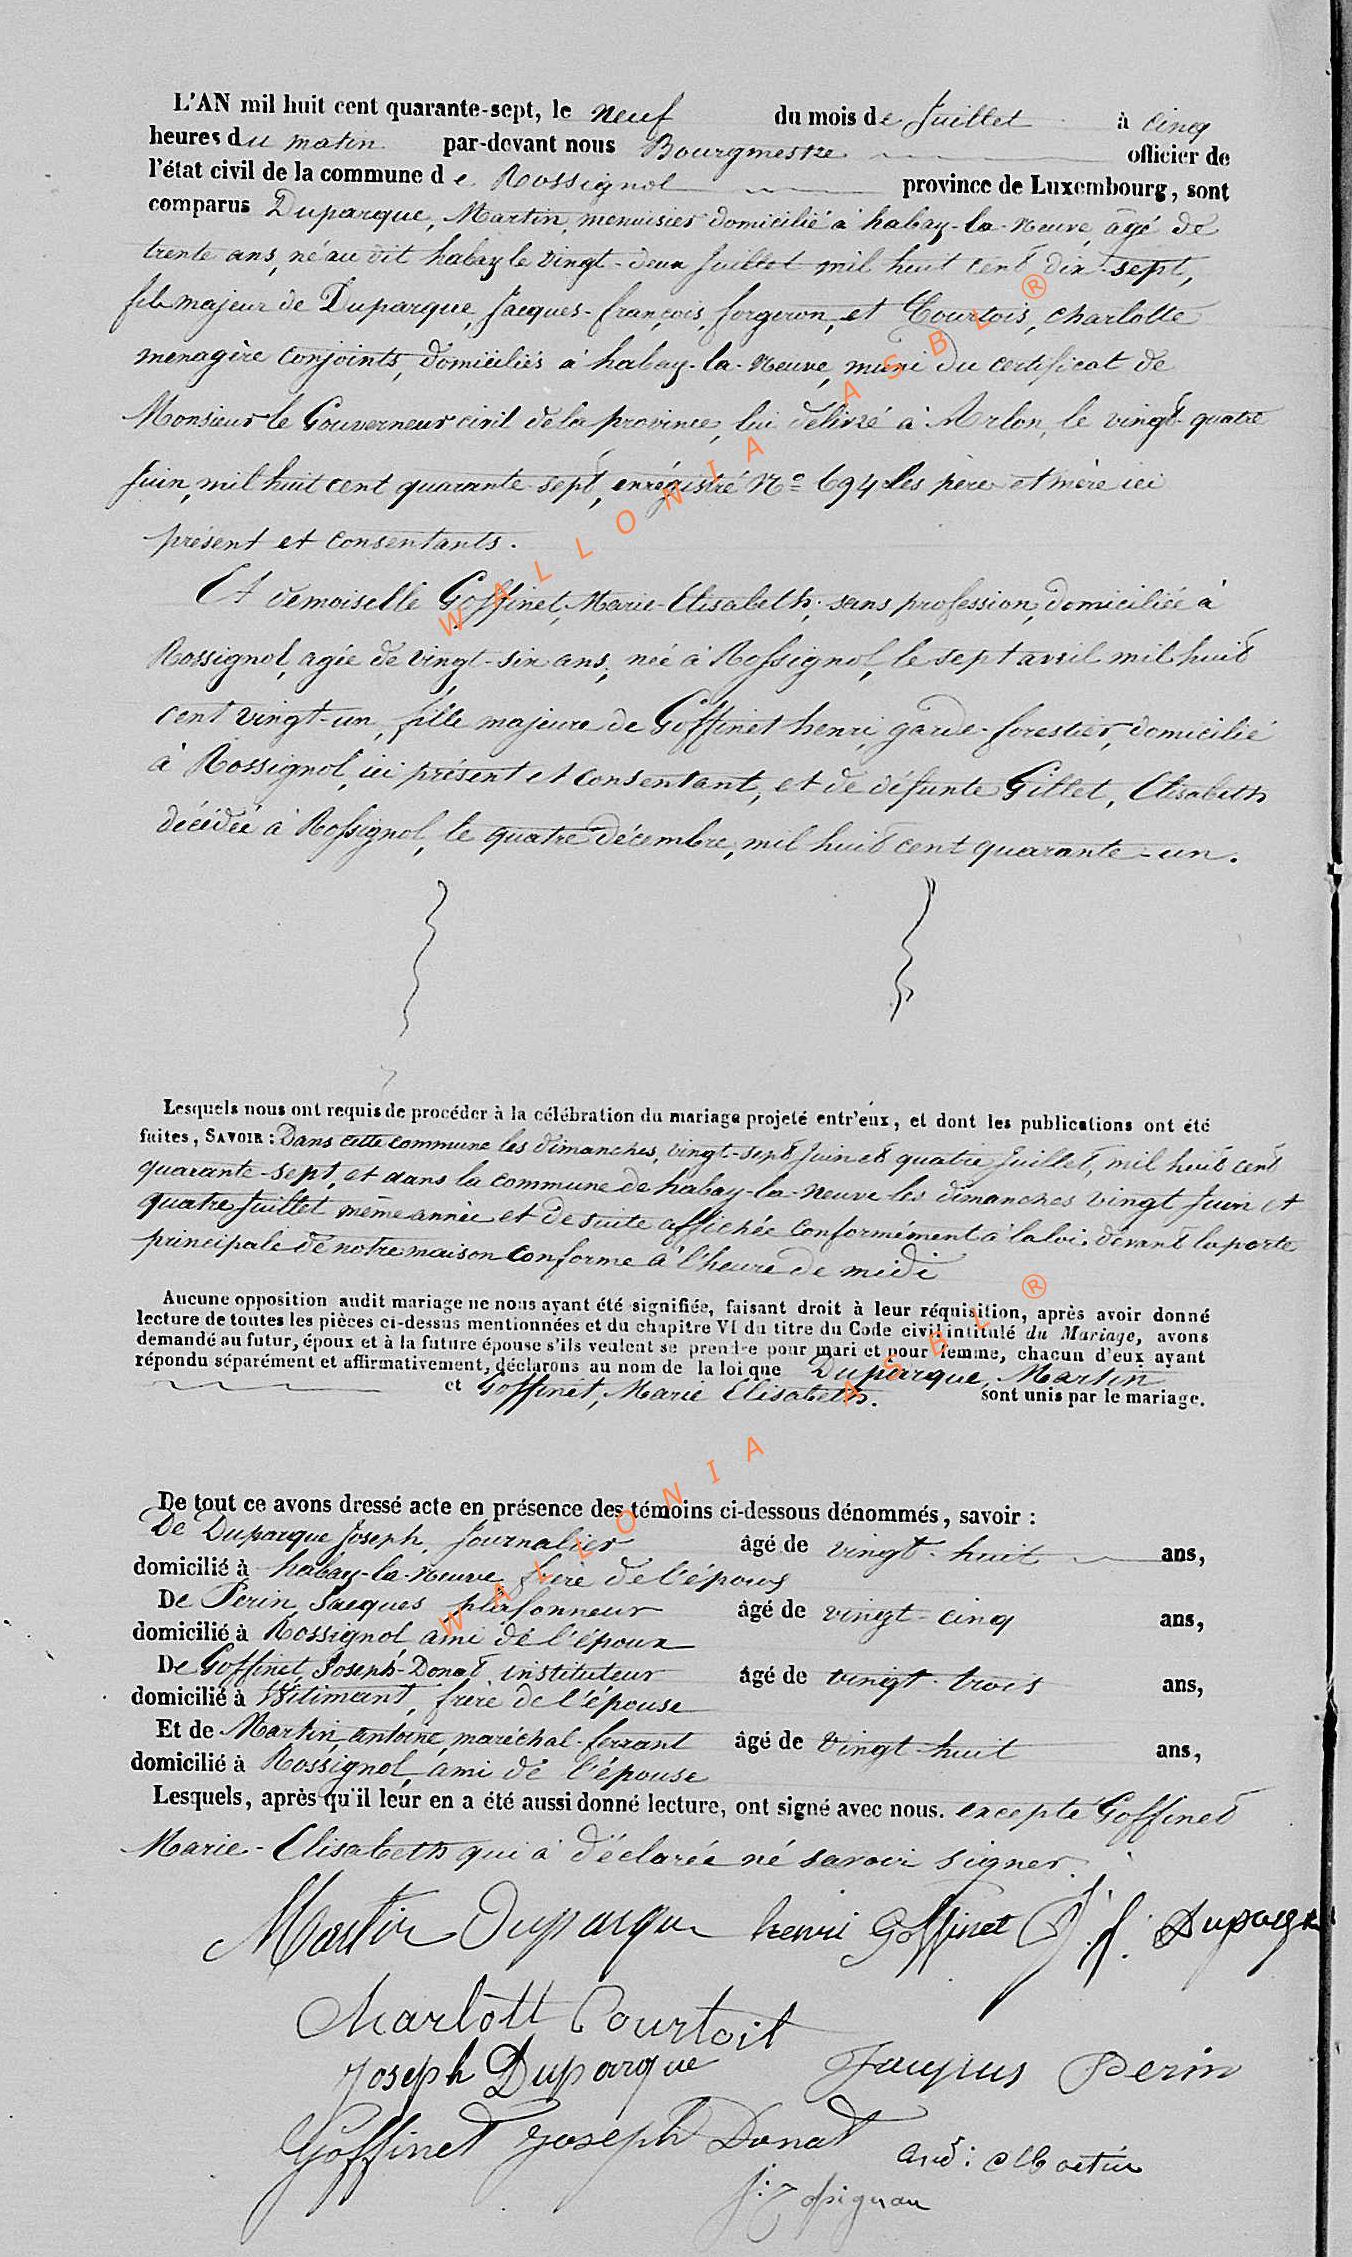 L'AN mil huit cent quarante-sept, le neuf du mois de Juillet à cinq
heures du matin par-devant nous Bourgmestre officier de
l'état civil de la commune de Rossignol province de Luxembourg, sont
comparus Duparque, Martin, menuisier domicilié à habay-la-Neuve, âgé de
trente ans, né au dit habay le vingt-deux Juillet mil huit cent dix-sept,
fils majeur de Duparque, Jacques-françois, forgeron, et Courtois, Charlotte
menagère conjoints, domiciliés à habay-la-Neuve, muni du certificat de
Monsieur le Gouverneur civil de la province, lui délivré à Arlon, le vingt-quatre
Juin, mil huit cent quarante-sept, enrégistré No 694 Les père et mère ici
présent et consentants.
Et demoiselle Goffinet, Marie-Elisabeth, sans profession, domiciliée à
Rossignol, agée de vingt-six ans, née à Rossignol, le sept avril mil huit
cent vingt-un, fille majeure de Goffinet henri, garde-forestier, domicilié
à Rossignol, ici présent et consentant, et de défunte Gillet, Elisabeth
décédée à Rossignol, le quatre décembre, mil huit cent quarante-un.
Lesquels nous ont requis de procéder à la célébration du mariage projeté entr'eux, et dont les publications ont été
faites, SAVOIR : Dans cette commune les dimanches, vingt-sept Juin et quatre Juillet, mil huit cent
quarante-sept, et dans la commune de habay-la-Neuve les dimanches vingt Juin et
quatre Juillet même année et de suite affichée conformément à la loi, devant la porte
principale de notre maison conforme à l'heure de midi
Aucune opposition audit mariage ne nous ayant été signifiée, faisant droit à leur réquisition, après avoir donné
lecture de toutes les pièces ci-dessus mentionnées et du chapitre VI du titre du Code civil intitulé du Mariage, avons
demandé au futur, époux et à la future épouse s'ils veulent se prendre pour mari et pour femme, chacun d'eux ayant
répondu séparément et affirmativement, déclarons au nom de la loi que Duparque, Martin
et Goffinet, Marie Elisabeth. sont unis par le mariage.
De tout ce avons dressé acte en présence des témoins ci-dessous dénommés, savoir :
De Duparque Joseph, Journalier âgé de vingt-huit ans,
domicilié à habay-la-Neuve, frère de l'époux
De Perin, Jacques plafonneur âgé de vingt-cinq ans,
domicilié à Rossignol, ami de l'époux
De Goffinet, Joseph-Donat instituteur âgé de vingt-trois ans,
domicilié à Witimont, frère de l'épouse
Et de Martin, antoine, maréchal-ferrant âgé de vingt-huit ans,
domicilié à Rossignol, ami de l'épouse
Lesquels, après qu'il leur en a été aussi donné lecture, ont signé avec nous. excepté Goffinet
Marie-Elisabeth qui à déclarée né savoir signer.
Martin Duparque henri Goffinet J. f. Duparque
Charlott Courtoit
Joseph Duparque Jacques Perin
Goffinet Joseph Donat Martin
WALLONIA ASBL ®
WALLONIA ASBL ®